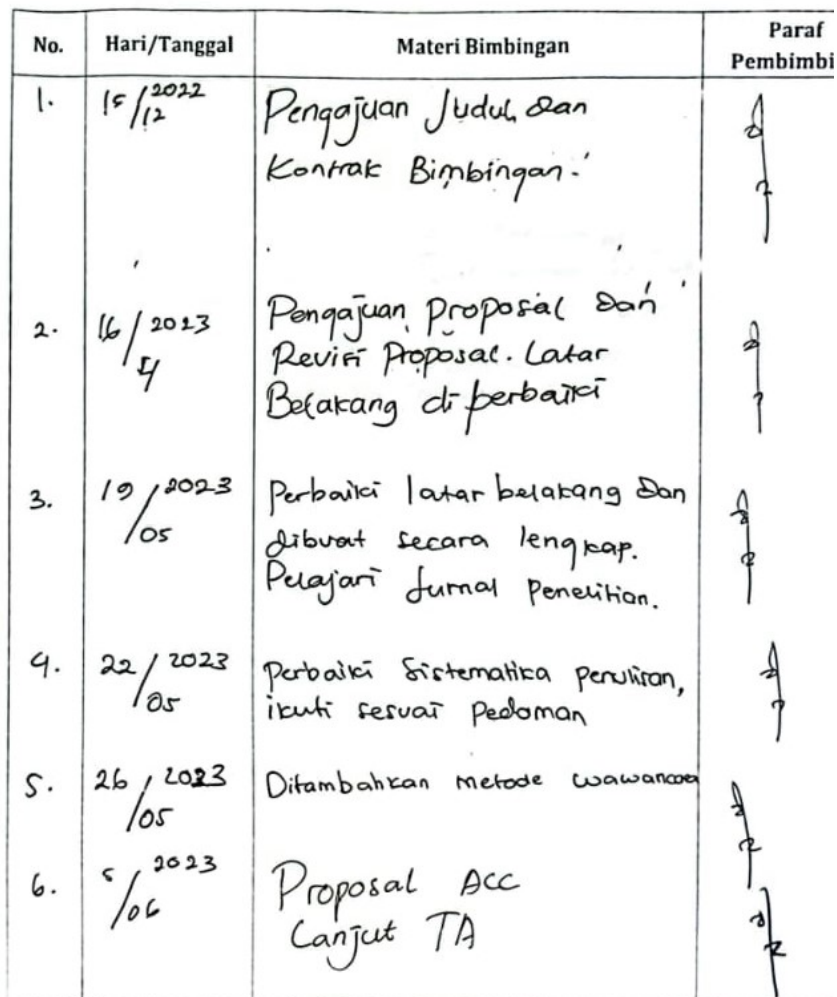 No. Hari/Tanggal Materi Bimbingan Paraf
Pembimbi
1. 15/12 2022 Pengajuan Judul dan
Kontrak Bimbingan.
2. 16/ 2023 Pengajuan Proposal dan
Revisi Proposal. Latar
Belakang di perbaiki
3. 19/05 2023 Perbaiki latar belakang dan
dibuat secara lengkap.
Pelajari Jurnal Penelitian.
4. 22/05 2023 Perbaiki Sistematika penulisan,
ikuti sesuai Pedoman
5. 26/05 2023 Ditambahkan metode wawancara
6. 5/06 2023 Proposal Acc
Lanjut TA